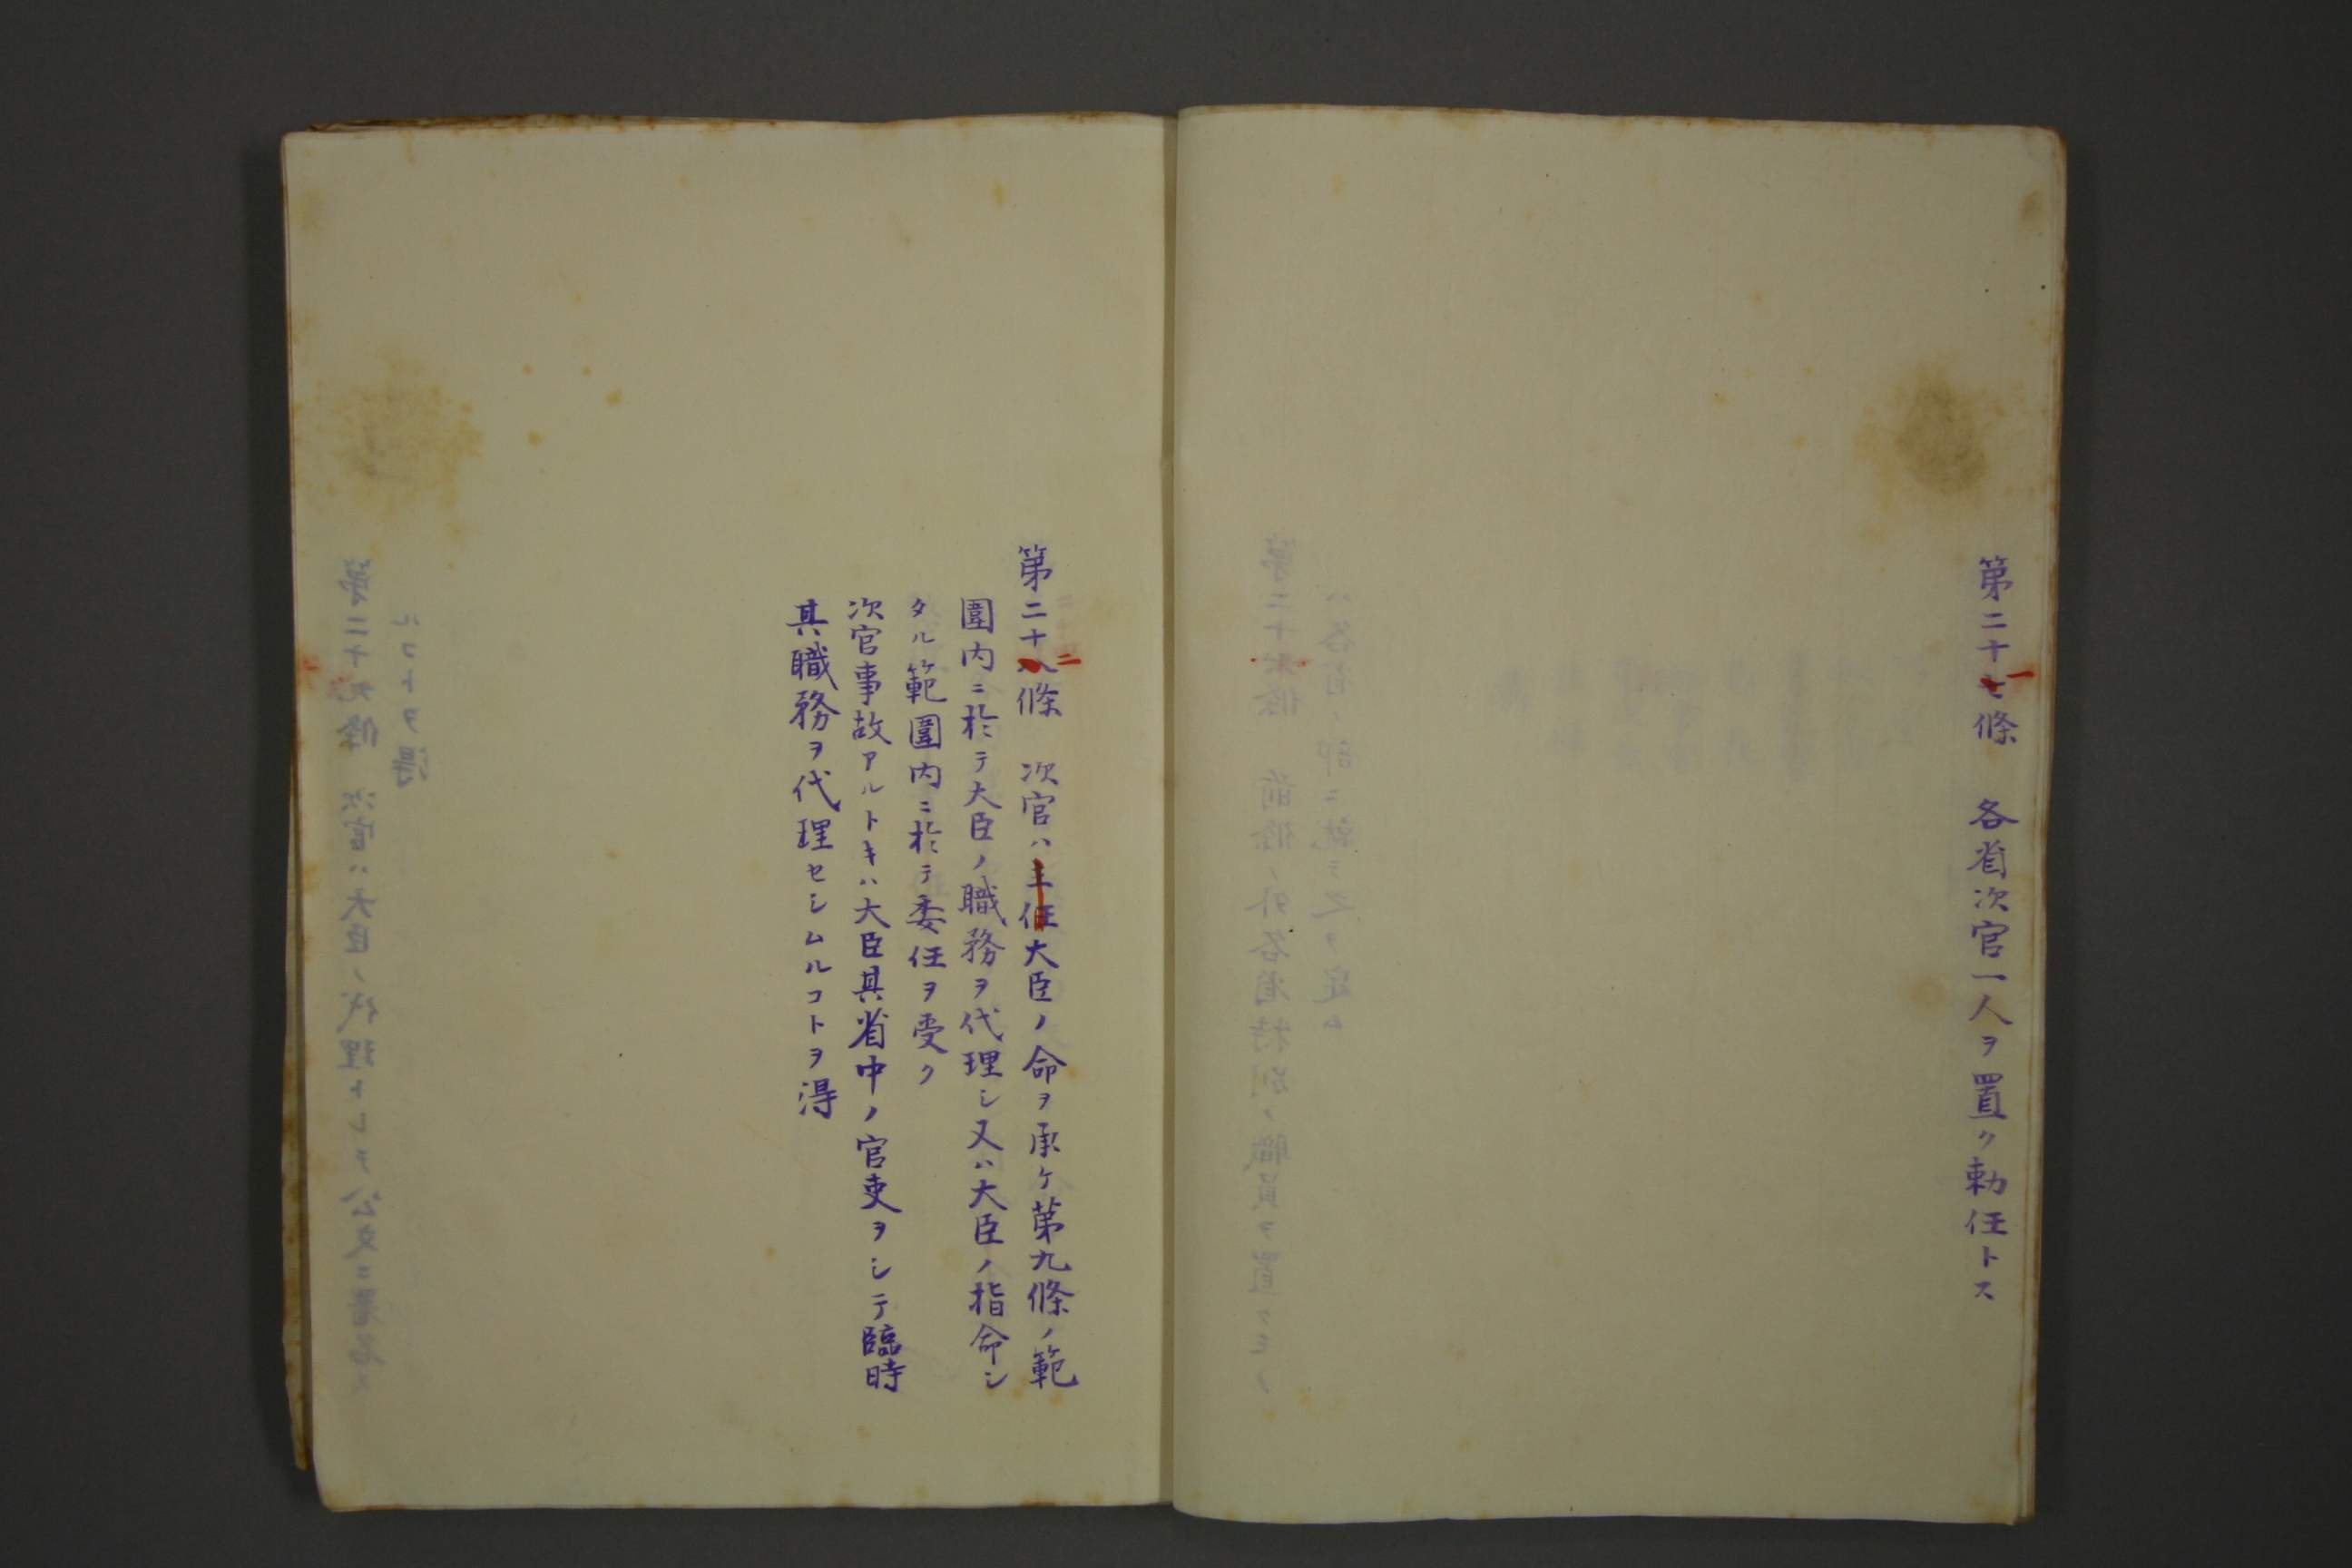 第二十七條　各省次官一人ヲ置ク勅任トス
一
第二十八條　次官ハ主任大臣ノ命ヲ承ケ第九條ノ範
二
圍内ニ於テ大臣ノ職務ヲ代理シ又ハ大臣ノ指命シ
タル範圍内ニ於テ委任ヲ受ク
次官事故アルトキハ大臣其省中ノ官吏ヲシテ臨時
其職務ヲ代理セシムルコトヲ得